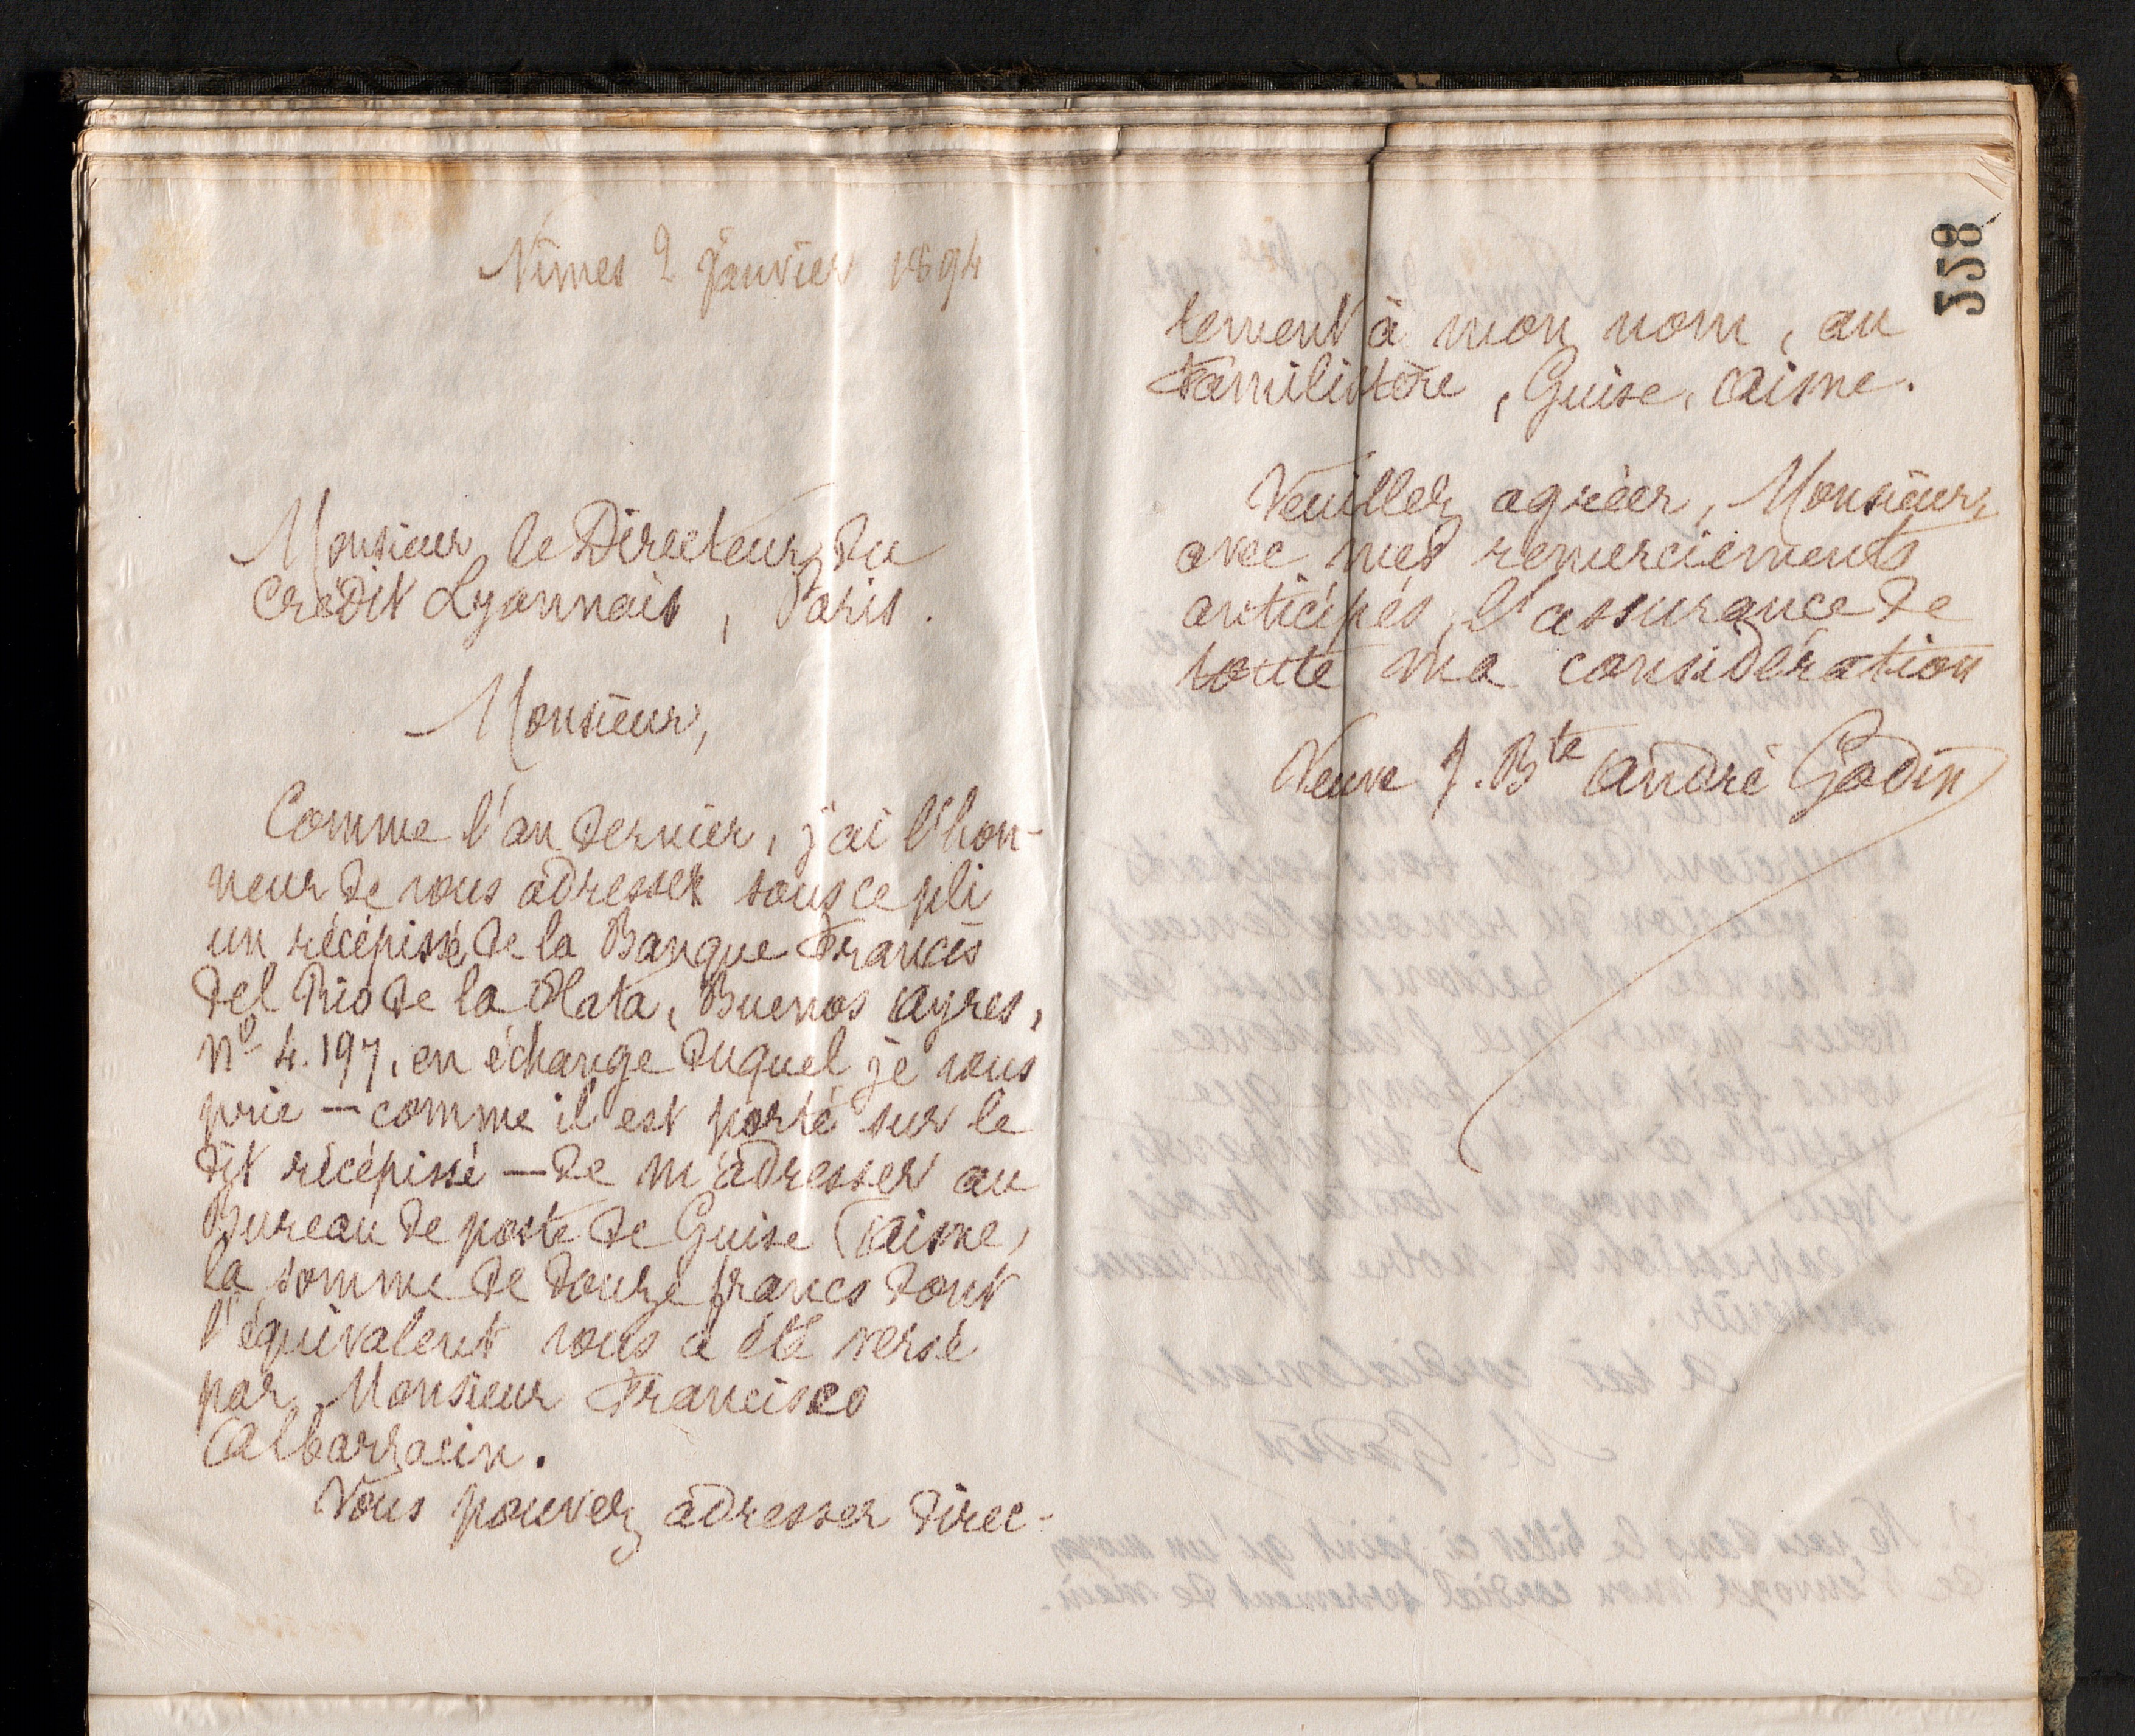 Nîmes 2 Janvier 1894
Monsieur le Directeur du
Crédit Lyonnais, Paris.
Monsieur,
Comme l'an dernier, j'ai l'hon-
neur de vous adresser sous ce pli
un récépissé de la Banque Francés
del Rio de la Plata, Buenos Ayres,
Nº 4.197, en échange duquel je vous
prie — comme il est porté sur le
dit récépissé — de m'adresser au
Bureau de poste de Guise (Aisne)
la somme de douze francs dont
l'équivalent vous a été versé
par Monsieur Francisco
Albarracin.
Vous pouvez adresser direc-
tement à mon nom, au
Familistère, Guise, Aisne.
Veuillez agréer, Monsieur,
avec mes remerciements
anticipés, l'assurance de
toute ma considération
Veuve J. Bte André Godin
558